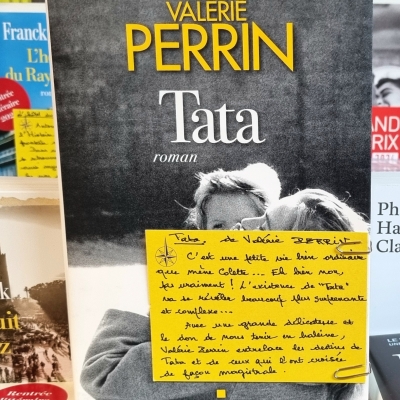 VALÉRIE
PERRIN
Tata
roman
Tata, de Valérie PERRIN
C'est une petite vie bien ordinaire
que mène Colette... Eh bien non,
pas vraiment ! L'existence de "Tata"
va se révéler beaucoup plus surprenante
et complexe...
Avec une grande délicatesse et
le don de nous tenir en haleine,
Valérie Perrin entrelace les destins de
Tata et de ceux qui l'ont croisée
de façon magistrale.
Franck
L'h
du Ray
Rentrée
littéraire
k
uit
z
Rentrée
AND
RIX
Ph
Ha
Cla
LE